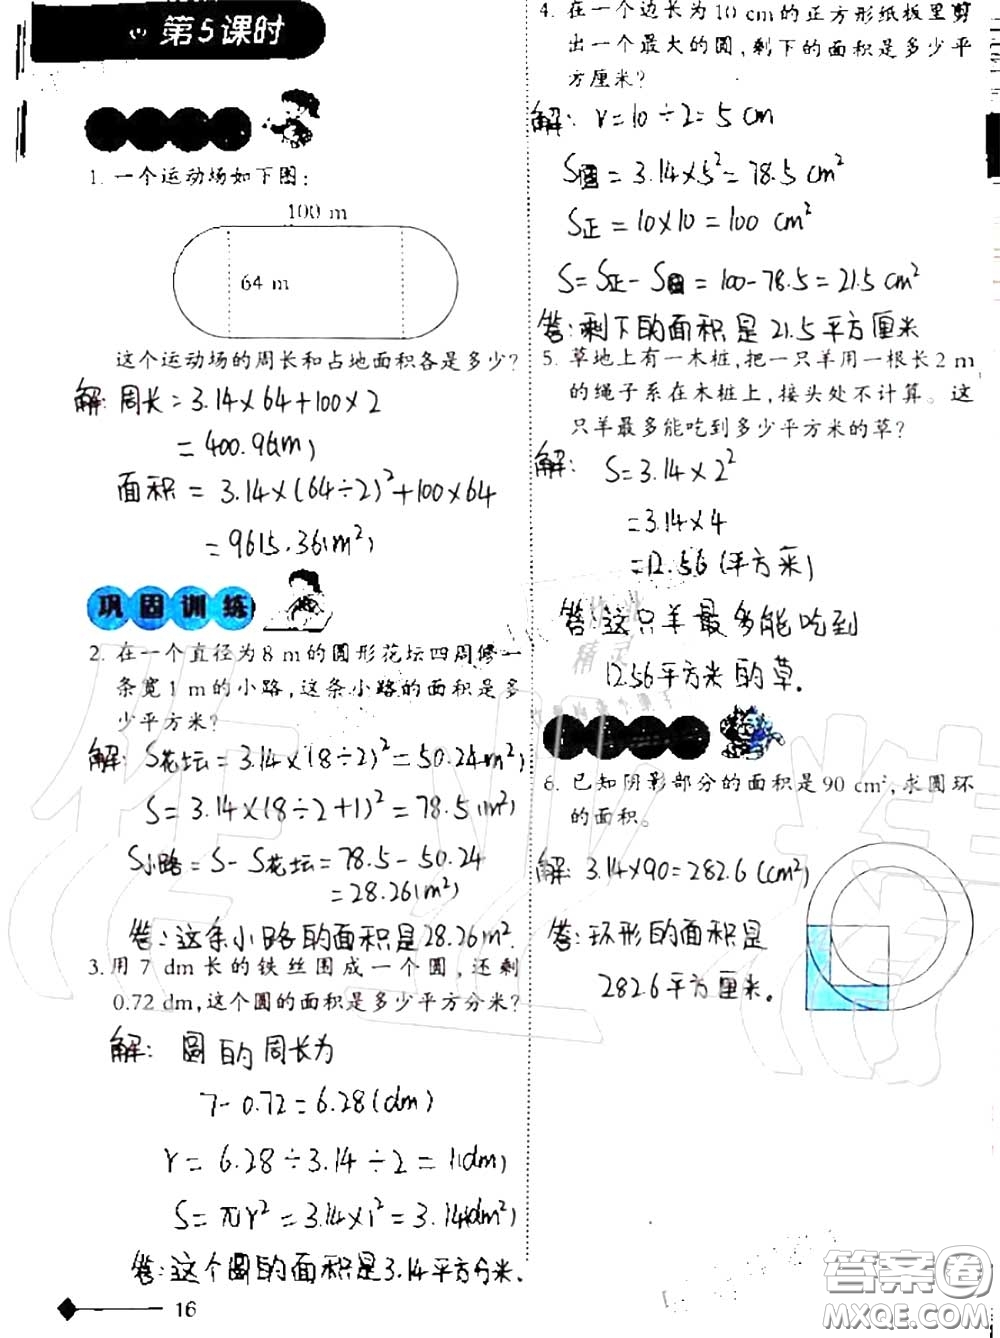 第5课时
1. 一个运动场如下图:
100 m
64 m
这个运动场的周长和占地面积各是多少?
解: 周长 = 3.14×64+100×2
= 400.96(m)
面积 = 3.14×(64÷2)²+100×64
= 9615.36(m²)
巩固训练
2. 在一个直径为8 m的圆形花坛四周修一
条宽1 m的小路,这条小路的面积是多
少平方米?
解: S花坛=3.14×(8÷2)²=50.24(m²)
S=3.14×(8÷2+1)²=78.5(m²)
S小路=S-S花坛=78.5-50.24
=28.26(m²)
答:这条小路的面积是28.26m².
3. 用 7 dm长的铁丝围成一个圆,还剩
0.72 dm,这个圆的面积是多少平方分米?
解: 圆的周长为
7-0.72=6.28(dm)
r=6.28÷3.14÷2=1(dm)
S=πr²=3.14×1²=3.14(dm²)
答:这个圆的面积是3.14平方分米.
16
4. 在一个边长为10 cm的正方形纸板里剪
出一个最大的圆,剩下的面积是多少平
方厘米?
解: r=10÷2=5 cm
S圆=3.14×5²=78.5 cm²
S正=10×10=100 cm²
S=S正-S圆=100-78.5=21.5 cm²
答:剩下的面积是21.5平方厘米
5. 草地上有一木桩,把一只羊用一根长2 m
的绳子系在木桩上,接头处不计算。这
只羊最多能吃到多少平方米的草?
解: S=3.14×2²
=3.14×4
=12.56(平方米)
答:这只羊最多能吃到
12.56平方米的草.
6. 已知阴影部分的面积是90 cm²,求圆环
的面积。
解: 3.14×90=282.6(cm²)
答:环形的面积是
282.6平方厘米.
答案圈
MXQE.COM